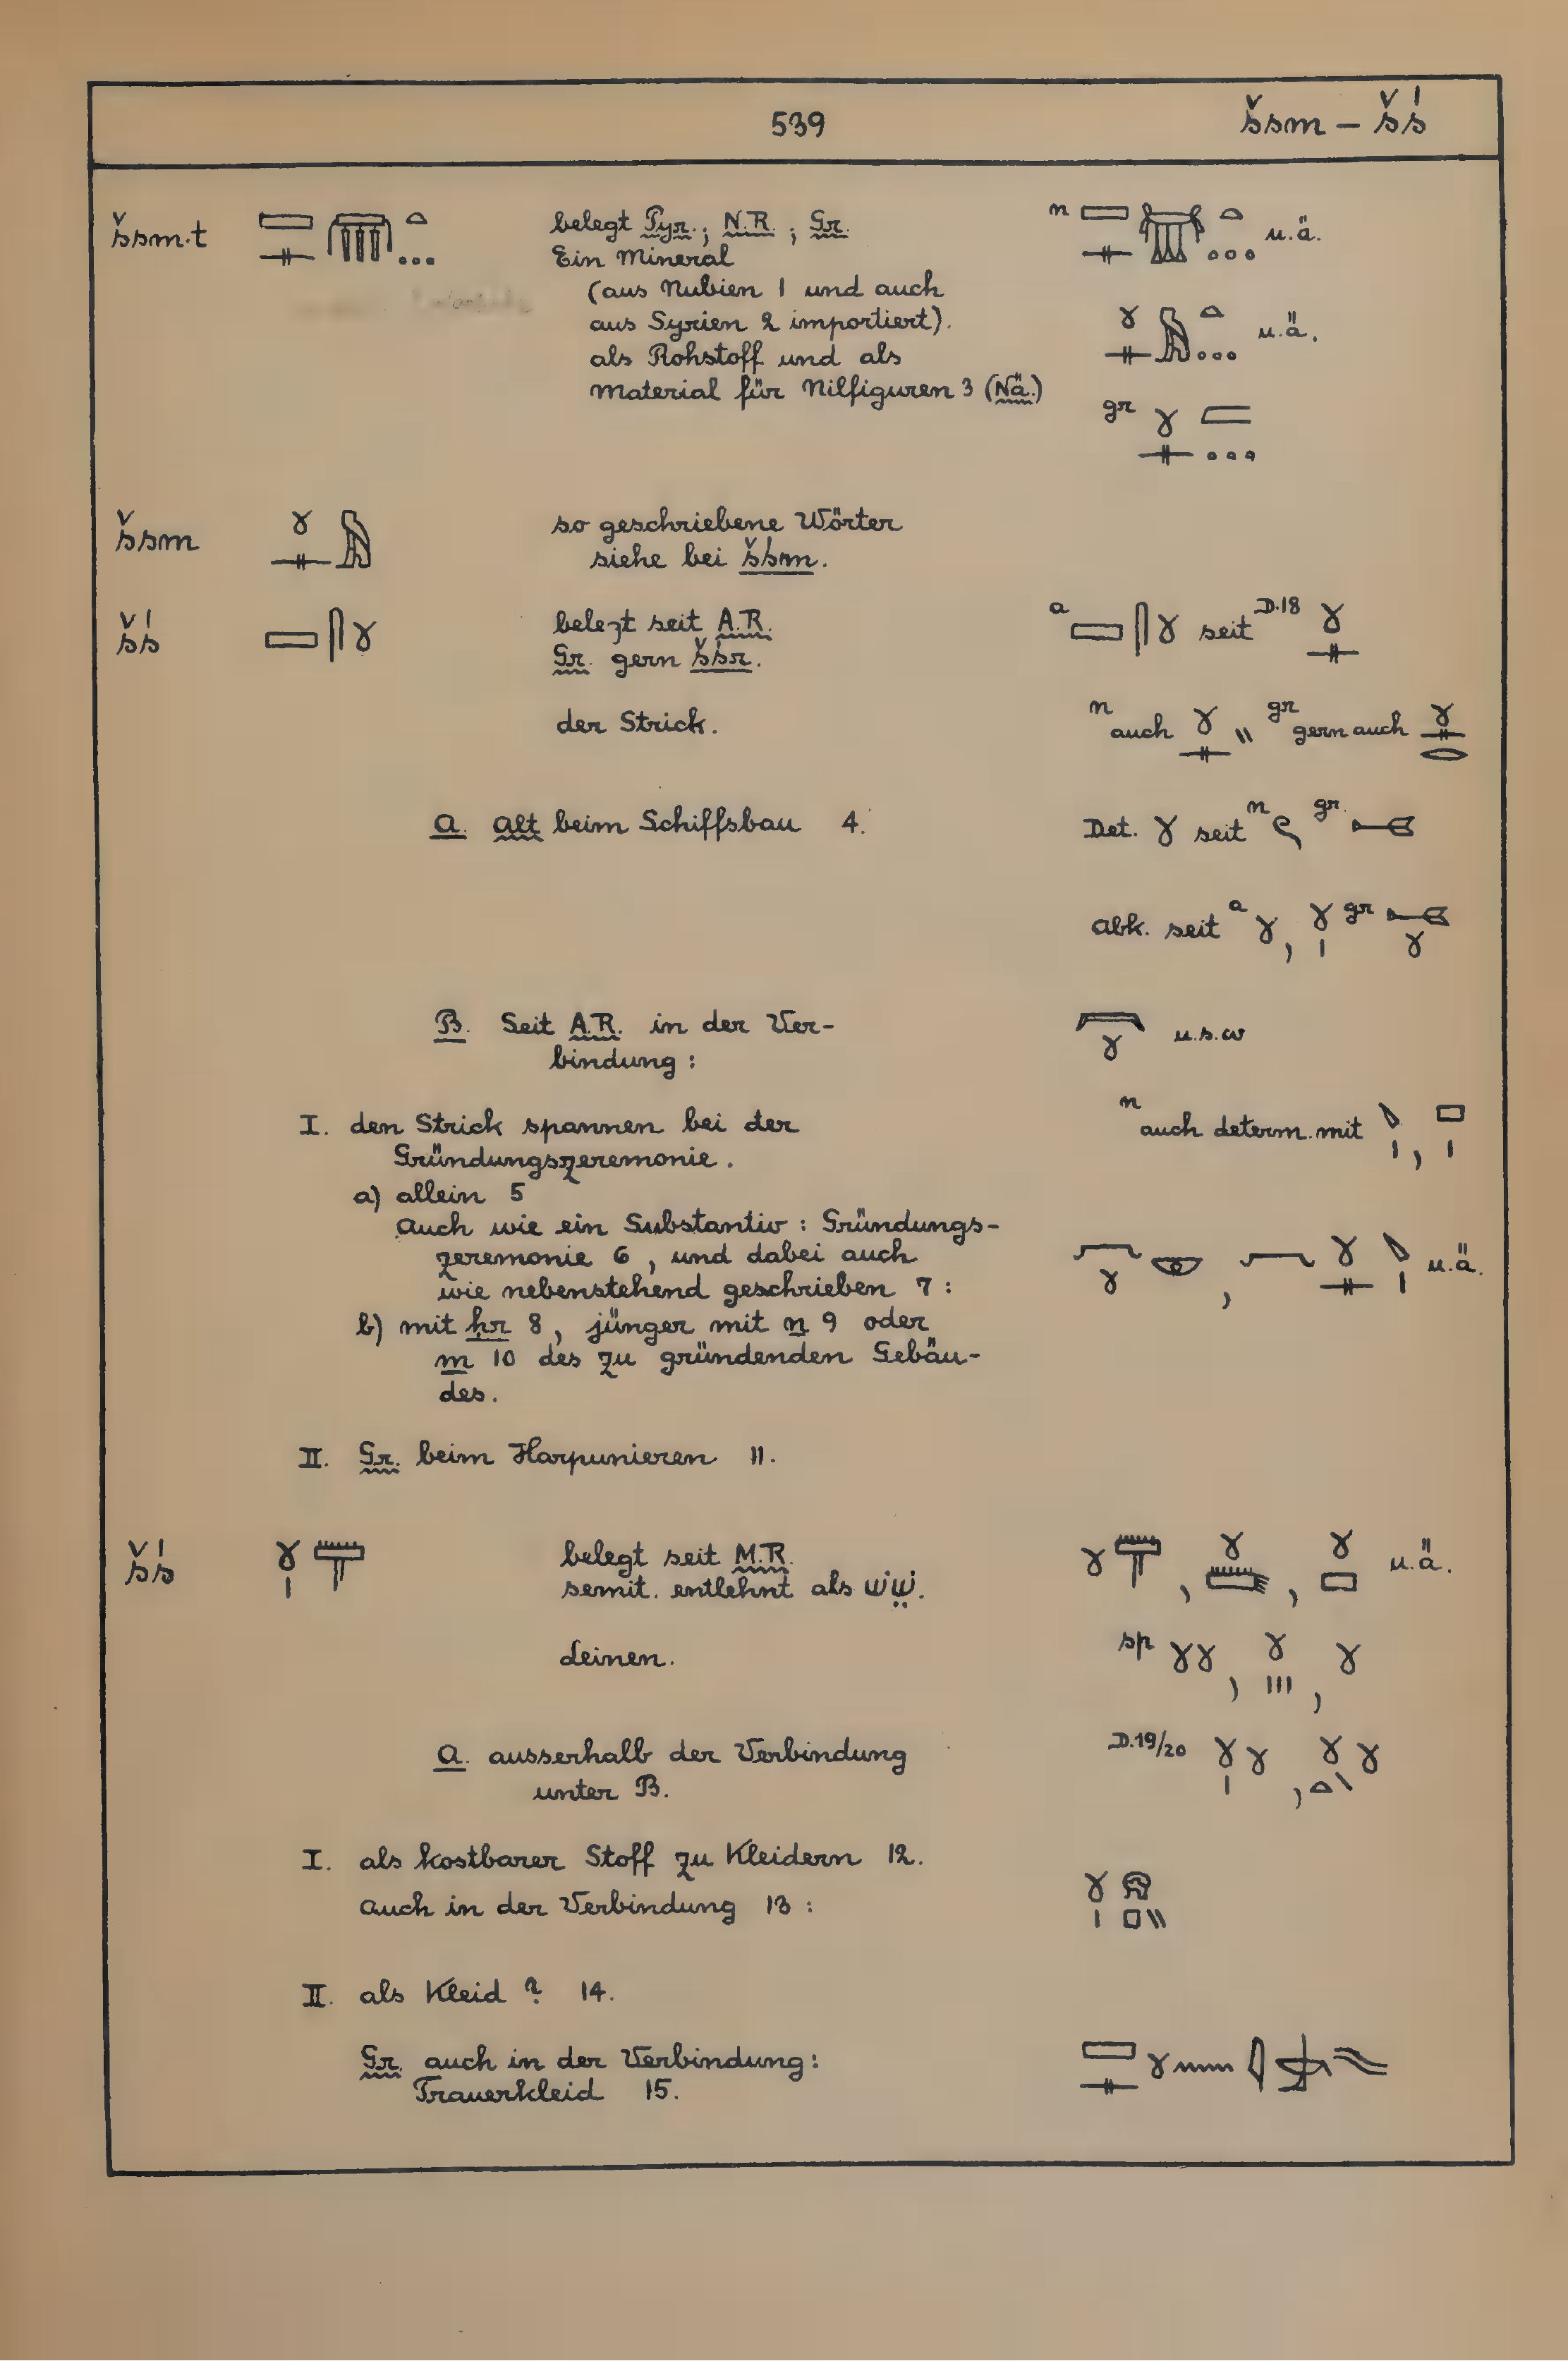 539
šsm – šś
šsm.t
belegt Pyr.; N.R.; Gr.
Ein Mineral
(aus Nubien 1 und auch
aus Syrien 2 importiert).
als Rohstoff und als
Material für Nilfiguren 3 (Nä.)
n u.ä.
u.ä.
gr
šsm
so geschriebene Wörter
siehe bei šśm.
šś
belegt seit A.R.
Gr. gern šśr.
der Strick.
a seit D.18
n auch gr gern auch
A. Alt beim Schiffsbau 4.
Det. seit n gr.
Abk. seit a , gr
B. Seit A.R. in der Ver-
bindung:
u.s.w
I. den Strick spannen bei der
Gründungszeremonie.
n auch determ. mit ,
a) allein 5
Auch wie ein Substantiv: Gründungs-
zeremonie 6, und dabei auch
wie nebenstehend geschrieben 7:
, u.ä.
b) mit ḥr 8, jünger mit n 9 oder
m 10 des zu gründenden Gebäu-
des.
II. Gr. beim Harpunieren 11.
šś
belegt seit M.R.
semit. entlehnt als שׁשׁ.
Leinen.
, , u.ä.
sp , ,
A. ausserhalb der Verbindung
unter B.
D.19/20 ,
I. als kostbarer Stoff zu Kleidern 12.
Auch in der Verbindung 13:
II. als Kleid? 14.
Gr. auch in der Verbindung:
Trauerkleid 15.